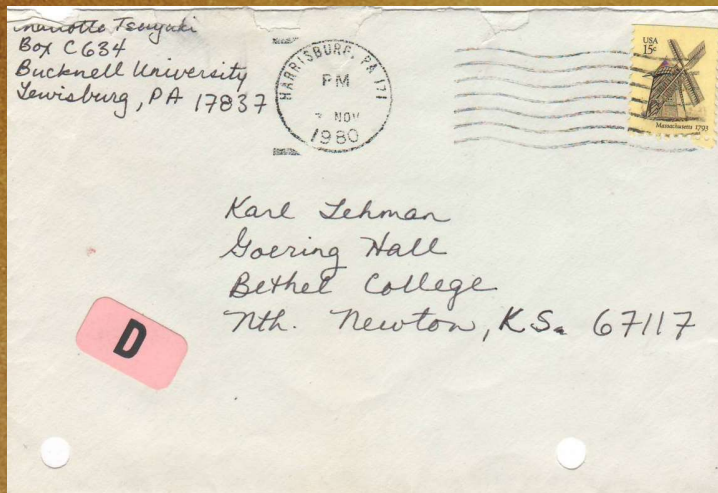 Charlotte Tsuyuki
Box C634
Bucknell University
Lewisburg, PA 17837
HARRISBURG, PA 171
PM
NOV
1980
USA
15c
Massachusetts 1793
Karl Lehman
Goering Hall
Bethel College
Nth. Newton, KS. 67117
D